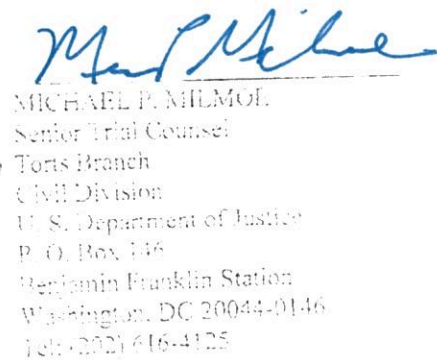 MICHAEL P. MILMOE
Senior Trial Counsel
Torts Branch
Civil Division
U. S. Department of Justice
P. O. Box 146
Benjamin Franklin Station
Washington, DC 20044-0146
Tel: (202) 616-4125